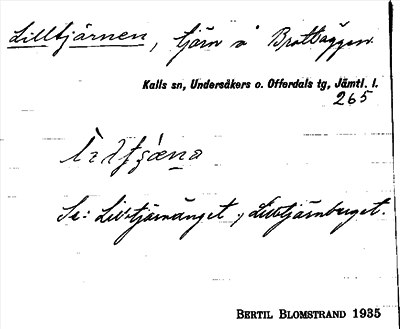 Lilltjärnen, tjärn å Brattäggen.
Kalls sn, Undersåkers o. Offerdals tg, Jämtl. l.
265
Se: Lilltjärnänget, Lilltjärnberget.
BERTIL BLOMSTRAND 1935